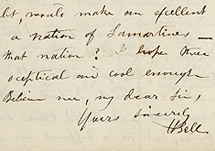 but, would make an excellent
a nation of Lamartines —
that nation? I hope
sceptical and cool enough
Believe me, my dear Sir,
Yours sincerely
Bell